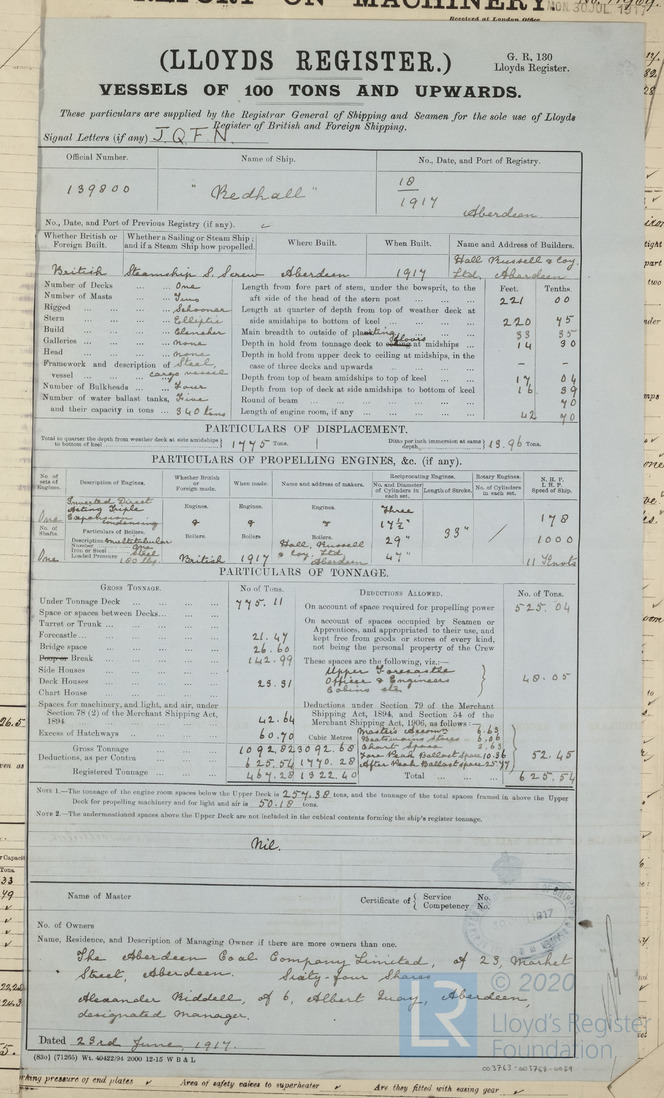 REPORT ON MACHINERY.
MON. 30 JUL. 1917
Received at London Office
(LLOYDS REGISTER.)
G. R. 130
Lloyds Register.
VESSELS OF 100 TONS AND UPWARDS.
These particulars are supplied by the Registrar General of Shipping and Seamen for the sole use of Lloyds
Register of British and Foreign Shipping.
Signal Letters (if any) J.Q.F.N.
Official Number. Name of Ship. No., Date, and Port of Registry.
139800 "Redhall" 18
1917
Aberdeen
No., Date, and Port of Previous Registry (if any).
Whether British or Foreign Built. Whether a Sailing or Steam Ship; and if a Steam Ship how propelled. Where Built. When Built. Name and Address of Builders.
British Steamship S. Screw Aberdeen 1917 Hall Russell & Coy. Ltd, Aberdeen
Number of Decks One
Number of Masts Two
Rigged Schooner
Stern Elliptic
Build Clencher
Galleries none
Head none
Framework and description of vessel Steel, cargo vessel
Number of Bulkheads Four
Number of water ballast tanks, Five
and their capacity in tons 340 tons
Feet. Tenths.
Length from fore part of stem, under the bowsprit, to the
aft side of the head of the stern post 221 00
Length at quarter of depth from top of weather deck at
side amidships to bottom of keel 220 45
Main breadth to outside of plating 33 35
Depth in hold from tonnage deck to floors at midships 14 30
Depth in hold from upper deck to ceiling at midships, in the
case of three decks and upwards - -
Depth from top of beam amidships to top of keel 17 04
Depth from top of deck at side amidships to bottom of keel 16 89
Round of beam 70
Length of engine room, if any 42 70
PARTICULARS OF DISPLACEMENT.
Total to quarter the depth from weather deck at side amidships to bottom of keel 1775 Tons.
Ditto per inch immersion at same depth 13.96 Tons.
PARTICULARS OF PROPELLING ENGINES, &c. (if any).
No. of sets of Engines. Description of Engines. Whether British or Foreign made. When made. Name and address of makers. Reciprocating Engines. Rotary Engines. N.H.P. I.H.P. Speed of Ship.
No. and Diameter of Cylinders in each set. Length of Stroke. No. of Cylinders in each set.
One Inverted Direct Acting Triple Expansion condensing
Engines. Engines. Engines.
No. of Shafts. Particulars of Boilers. Boilers. Boilers. Boilers.
One Description multitubular
Number One
Iron or Steel Steel
Loaded Pressure 180 lbs.
British 1917 Hall, Russell & Coy. Ltd Aberdeen
Three
17½" 29" 47" 33" / 178
1000
11 Knots
PARTICULARS OF TONNAGE.
GROSS TONNAGE. No of Tons.
Under Tonnage Deck 775.11
Space or spaces between Decks
Turret or Trunk
Forecastle 21.47
Bridge space 26.60
Poop or Break 142.99
Side Houses
Deck Houses 23.31
Chart House
Spaces for machinery, and light, and air, under
Section 78 (2) of the Merchant Shipping Act,
1894 42.64
Excess of Hatchways 60.70
Cubic Metres
Gross Tonnage 1092.82 3092.68
Deductions, as per Contra 625.54 1770.28
Registered Tonnage 467.28 1322.40
DEDUCTIONS ALLOWED. No. of Tons.
On account of space required for propelling power 525.04
On account of spaces occupied by Seamen or
Apprentices, and appropriated to their use, and
kept free from goods or stores of every kind,
not being the personal property of the Crew
These spaces are the following, viz.:—
Upper Forecastle
Officers & Engineers
Cabins etc. 48.05
Deductions under Section 79 of the Merchant
Shipping Act, 1894, and Section 54 of the
Merchant Shipping Act, 1906, as follows:—
Master's Accom. 6.63
Boatswains Stores
Chart Space 3.63
Fore Peak Ballast space 10.36
After Peak Ballast space 25.77
52.45
Total 625.54
NOTE 1.—The tonnage of the engine room spaces below the Upper Deck is 257.38 tons, and the tonnage of the total spaces framed in above the Upper
Deck for propelling machinery and for light and air is 50.18 tons.
NOTE 2.—The undermentioned spaces above the Upper Deck are not included in the cubical contents forming the ship's register tonnage.
Nil.
Name of Master
Certificate of { Service No.
Competency No.
No. of Owners
Name, Residence, and Description of Managing Owner if there are more owners than one.
The Aberdeen Coal Company Limited, of 23, Market
Street, Aberdeen. Sixty-four Shares
Alexander Riddell, of 6, Albert Quay, Aberdeen,
designated manager.
Dated 23rd June, 1917.
(83o) (71265) Wt. 40422/94 2000 12-15 W B & L
LR
© 2020
Lloyd's Register
Foundation
003763-003768-0059
working pressure of end plates Area of safety valves to superheater Are they fitted with easing gear